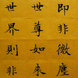 即非微塵
世尊如來
世界則非